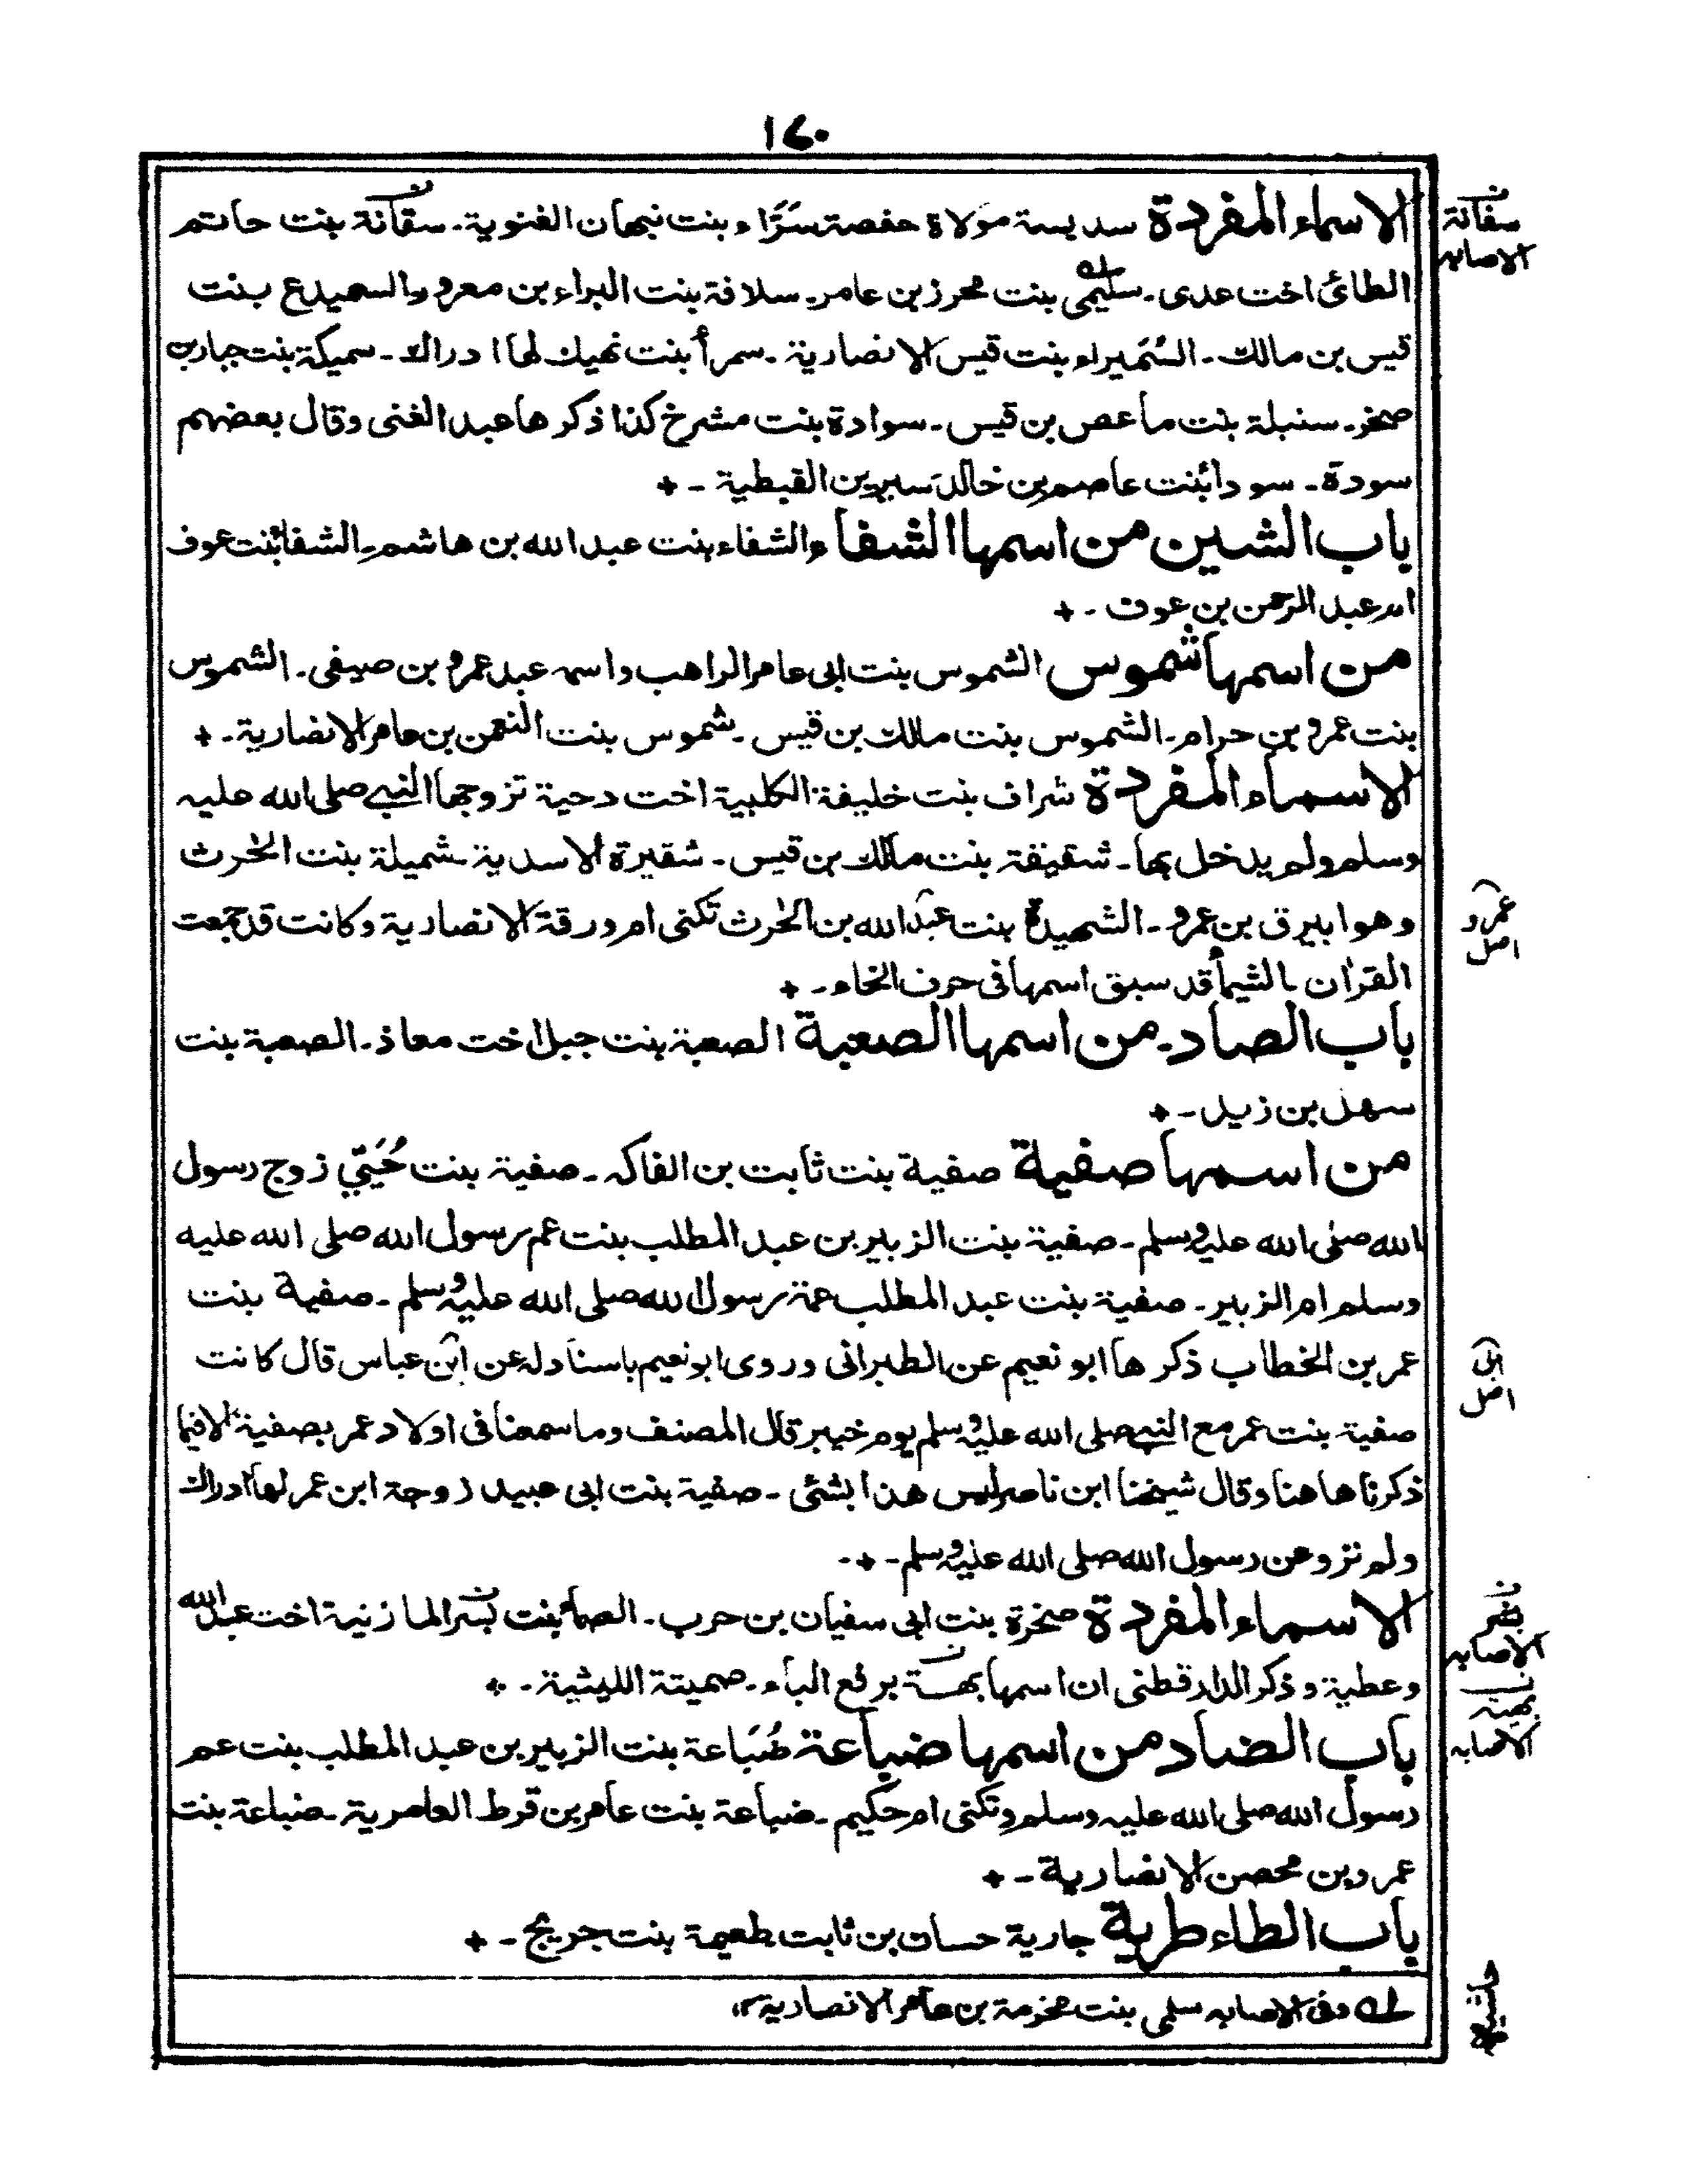 ١٧٠
الاسماء المفردة سديسة مولاة حفصة سَرَّاء بنت نبهان الغنوية۔ سقانة بنت حاتم
الطائى اخت عدى۔ سليمى بنت محرز بن عامر۔ سلافة بنت البراء بن معرور السميدع بنت
قيس بن مالك۔ السُمَيراء بنت قيس الانصارية۔ سمرأ بنت نهيك لها ادراك۔ سميكة بنت جبار بن
صخر۔ سنبلة بنت ماعص بن قيس۔ سوادة بنت مشرخ كذا ذكرها عبد الغنى وقال بعضهم
سودة۔ سودا بنت عاصم بن خالد سيرين القبطية۔
باب الشين من اسمها الشفاء الشفاء بنت عبد الله بن هاشم۔ الشفا بنت عوف
ام عبد الرحمن بن عوف۔
من اسمها شموس الشموس بنت ابى عامر الراهب واسمه عبد عمرو بن صيفى۔ الشموس
بنت عمرو بن حرام۔ الشموس بنت مالك بن قيس۔ شموس بنت النعمن بن عامر الانصارية۔
الاسماء المفردة شراف بنت خليفة الكلبية اخت دحية تزوجها النبى صلى الله عليه
وسلم ولم يدخل بها۔ شقيقة بنت مالك بن قيس۔ شقيرة الاسدية۔ شميلة بنت الحٰرث
وهو ابيرق بن عمرو۔ الشهيدة بنت عبد الله بن الحٰرث تكنى ام ورقة الانصارية وكانت قد جمعت
القراٰن۔ الشيمأ قد سبق اسمها فى حرف الخاء۔
باب الصاد۔ من اسمها الصعبة الصعبة بنت جبل اخت معاذ۔ الصعبة بنت
سهل بن زيد۔
من اسمها صفية صفية بنت ثابت بن الفاكه۔ صفية بنت حُيَيّ زوج رسول
الله صلى الله عليه وسلم۔ صفية بنت الزبير بن عبد المطلب بنت عم رسول الله صلى الله عليه
وسلم ام الزبير۔ صفية بنت عبد المطلب عمة رسول الله صلى الله عليه وسلم۔ صفية بنت
عمر بن الخطاب ذكرها ابو نعيم عن الطبرانى وروى ابو نعيم باسناد له عن ابن عباس قال كانت
صفية بنت عمر مع النبى صلى الله عليه وسلم يوم خيبر قال المصنف وما سمعنا فى اولاد عمر بصفية الا فيما
ذكرنا هاهنا وقال شيخنا ابن ناصر ليس هذا بشئى۔ صفية بنت ابى عبيد زوجة ابن عمر لها ادراك
ولم تزو عن رسول الله صلى الله عليه وسلم۔
الاسماء المفردة صخرة بنت ابى سفيان بن حرب۔ الصمأ بنت بسر المازنية اخت عبد الله
وعطية وذكر الدار قطنى ان اسمها بهة برفع الباء۔ صميتة الليثية۔
باب الضاد من اسمها ضباعة ضُبَاعة بنت الزبير بن عبد المطلب بنت عم
رسول الله صلى الله عليه وسلم وتكنى ام حكيم۔ ضباعة بنت عامر بن قرط العامرية۔ ضباعة بنت
عمرو بن محصن الانصارية۔
باب الطاء طرية جارية حسان بن ثابت طعيمة بنت جريج۔
له وفى الاصابه سلمى بنت مخزمة بن عامر الانصارية ١٢
سفانة
الاصابه
عمرو
اصل
ابى
اصل
الاصابه
بهية
الاصابه
حاشيه